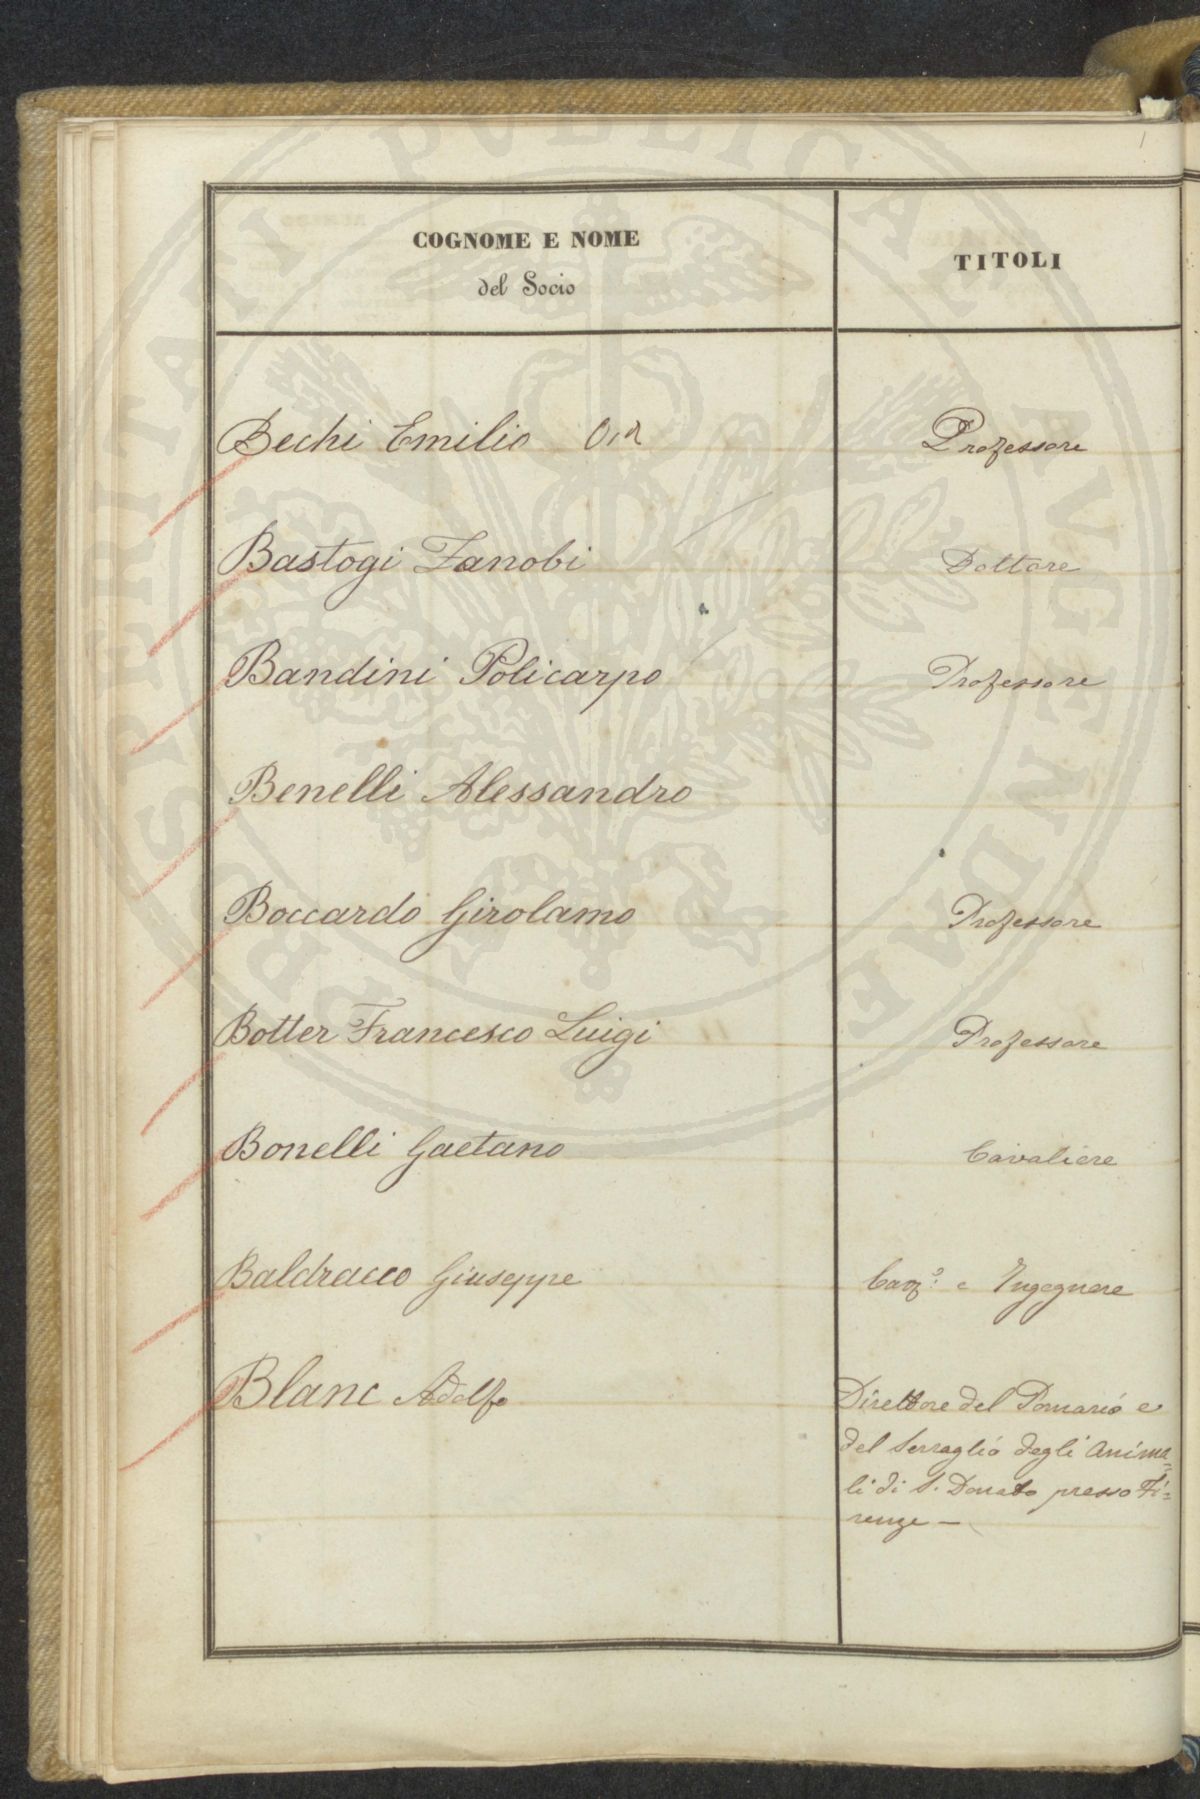 COGNOME E NOME
del Socio
TITOLI
Bechi Emilio
Professore
Bastogi Zanobi
Dottore
Bandini Policarpo
Professore
Benelli Alessandro
Boccardo Girolamo
Professore
Botter Francesco Luigi
Professore
Bonelli Gaetano
Cavaliere
Baldracco Giuseppe
e Ingegnere
Blanc Adolfo
Direttore del Pomario e
del Serraglio degli Anima=
li di S. Donato presso Fi=
renze —
PROSPERITATI PUBLICAE AVGENDAE